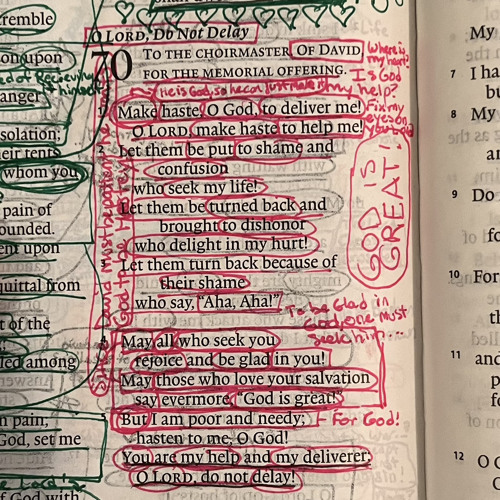 O LORD, Do Not Delay
70 TO THE CHOIRMASTER. OF DAVID,
FOR THE MEMORIAL OFFERING.
Where is my heart?
Is God my help?
He is God, so he can just make it
Fix my eyes on
1 Make haste, O God, to deliver me!
O LORD, make haste to help me!
2 Let them be put to shame and
confusion
who seek my life!
Let them be turned back and
brought to dishonor
who delight in my hurt!
3 Let them turn back because of
their shame
who say, “Aha, Aha!”
GOD IS GREAT!
To be Glad in
God, one must
seek him...
May all who seek you
rejoice and be glad in you!
May those who love your salvation
say evermore, “God is great!”
But I am poor and needy;
For God!
hasten to me, O God!
You are my help and my deliverer;
O LORD, do not delay!
tremble
upon
anger
isolation;
their tent
whom you
pain of
ounded.
ent upon
quittal from
t of the
led among
n pain;
God, set me
of God with
My
7 I ha
bu
8 My
an
9 Do
fo
10 For
th
11 and
p
fo
12 O G